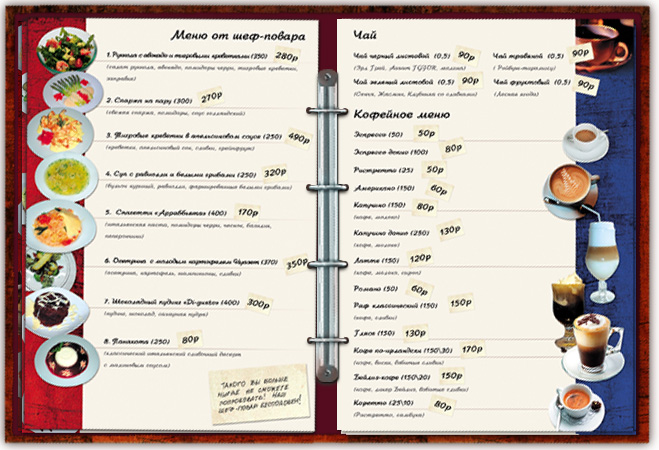 Меню от шеф-повара
1. Руккола с авокадо и тигровыми креветками (350) 280р
(салат руккола, авокадо, помидоры черри, тигровые креветки,
заправка)
2. Спаржа на пару (300) 270р
(свежая спаржа, помидоры, соус голландский)
3. Тигровые креветки в апельсиновом соусе (250) 490р
(креветки, апельсиновый сок, сливки, грейпфрут)
4. Суп с равиоли и белыми грибами (250) 320р
(бульон куриный, равиолли, фаршированные белыми грибами)
5. Спагетти «Аррабьята» (400) 170р
(итальянская паста, помидоры черри, чеснок, базилик,
пеперончини)
6. Осетрина с молодым картофелем (370) 350р
(осетрина, картофель, шампиньоны, сливки)
7. Шоколадный пудинг «Di-gusto» (400) 300р
(пудинг, шоколад, сахарная пудра)
8. Панакота (250) 80р
(классический итальянский сливочный десерт
с малиновым соусом)
ТАКОГО ВЫ БОЛЬШЕ
НИГДЕ НЕ СМОЖЕТЕ
ПОПРОБОВАТЬ! НАШ
ШЕФ-ПОВАР БЕСПОДОБЕН!
Чай
Чай черный листовой (0,5) 90р
(Эрл Грей, Ассам TGFOP, молоко)
Чай травяной (0,5) 90р
Чай зеленый листовой (0,5) 90р
(Сенча, Жасмин, Клубника со сливками)
Чай фруктовый (0,5) 90р
(Лесная ягода)
Кофейное меню
Эспрессо (50) 50р
Эспрессо допио (100) 80р
Ристретто (25) 50р
Американо (150) 60р
Капучино (150) 80р
(кофе, молоко)
Капучино допио (250) 130р
(кофе, молоко)
Латте (150) 120р
(кофе, молоко, сироп)
Романо (50) 60р
Раф классический (150) 150р
(кофе, сливки)
Гляссе (150) 130р
(кофе, мороженое)
Кофе по-ирландски (150\30) 170р
(кофе, виски, взбитые сливки)
Бейлиз-кофе (150\20) 150р
(кофе, ликер Бейлиз, взбитые сливки)
Корретто (25\10) 80р
(Ристретто, самбука)